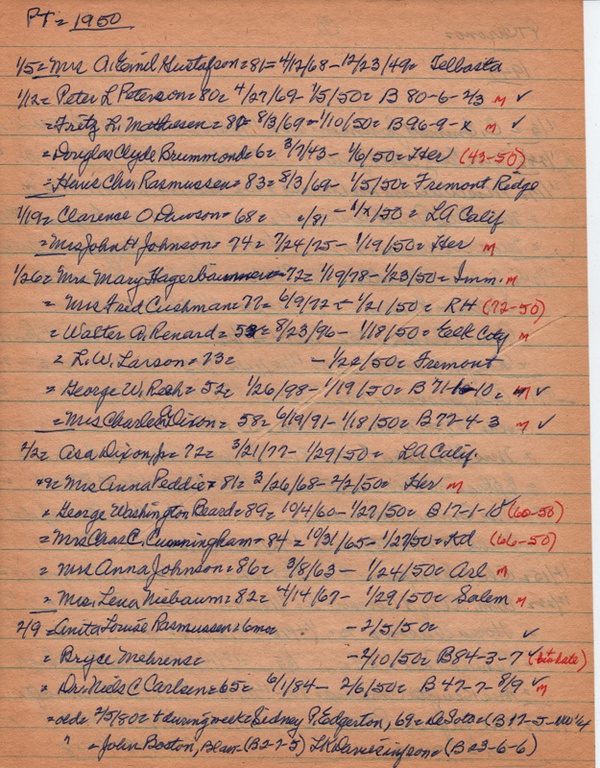 PT = 1950
1/5 = Mrs A. Emil Gustafson = 81 = 4/12/68 - 12/23/49 = Telbasta
1/12 = Peter L Peterson = 80 = 4/27/69 - 1/5/50 = B 80-6-2/3 m ✓
= Fritz L. Mathiesen = 80 = 8/3/69 - 1/10/50 = B 96-9-x m ✓
= Douglas Clyde Brummond = 6 = 3/7/43 - 1/6/50 = Her (43-50)
= Hans Chr. Rasmussen = 83 = 8/3/69 - 1/5/50 = Fremont Ridge
1/19 = Clarence O Dawson = 68 = c/81 - 1/x/50 = LA Calif
= Mrs John H Johnson = 74 = 7/24/75 - 1/19/50 = Her m
1/26 = Mrs Mary Hagerbaumer = 72 = 1/19/78 - 1/23/50 = Imm. m
= Mrs Fred Cushman = 77 = 6/9/72 - 1/21/50 = RH (72-50)
= Walter A. Renard = 53 = 8/23/96 - 1/18/50 = Elk City m
= L. W. Larson = 73 = - 1/22/50 = Fremont
= George W. Reeh = 52 = 1/26/98 - 1/19/50 = B 71-10 m ✓
= Mrs Charles Dixon = 58 = 6/19/91 - 1/18/50 = B 72-4-3 m ✓
2/2 = Asa Dixon, Jr = 72 = 3/21/77 - 1/29/50 = LA Calif
= Mrs Anna Peddie = 81 = 3/26/68 - 2/2/50 = Her m
= George Washington Beard = 89 = 10/4/60 - 1/27/50 = B 17-1-10 (60-50)
= Mrs Chas C. Cunningham = 84 = 10/31/65 - 1/27/50 = (66-50)
= Mrs Anna Johnson = 86 = 3/8/63 - 1/24/50 = Arl m
= Mrs. Lena Niebaum = 82 = 4/14/67 - 1/29/50 = Salem m
2/9 = Anita Louise Rasmussen = 6 mo = - 2/5/50 = ✓
= Bryce Mehrens = - 2/10/50 = B 84-3-7 ✓ (birthdate)
= Dr. Niels C Carlsen = 65 = 6/1/84 - 2/6/50 = B 47-7-8/9 ✓ m
= 2/5/80 = + during week = Sidney P. Edgerton, 69 = DeSoto = (B 17-5-NW 1/4
" = John Boston, Blair - (B 2-7-5) (B 23-6-6)